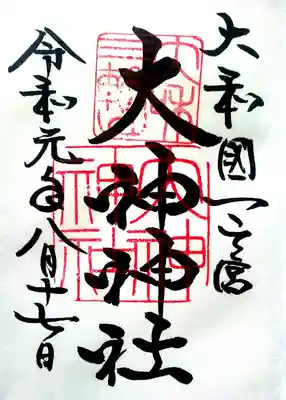 大和國一之宮
大神神社
令和元年八月十七日